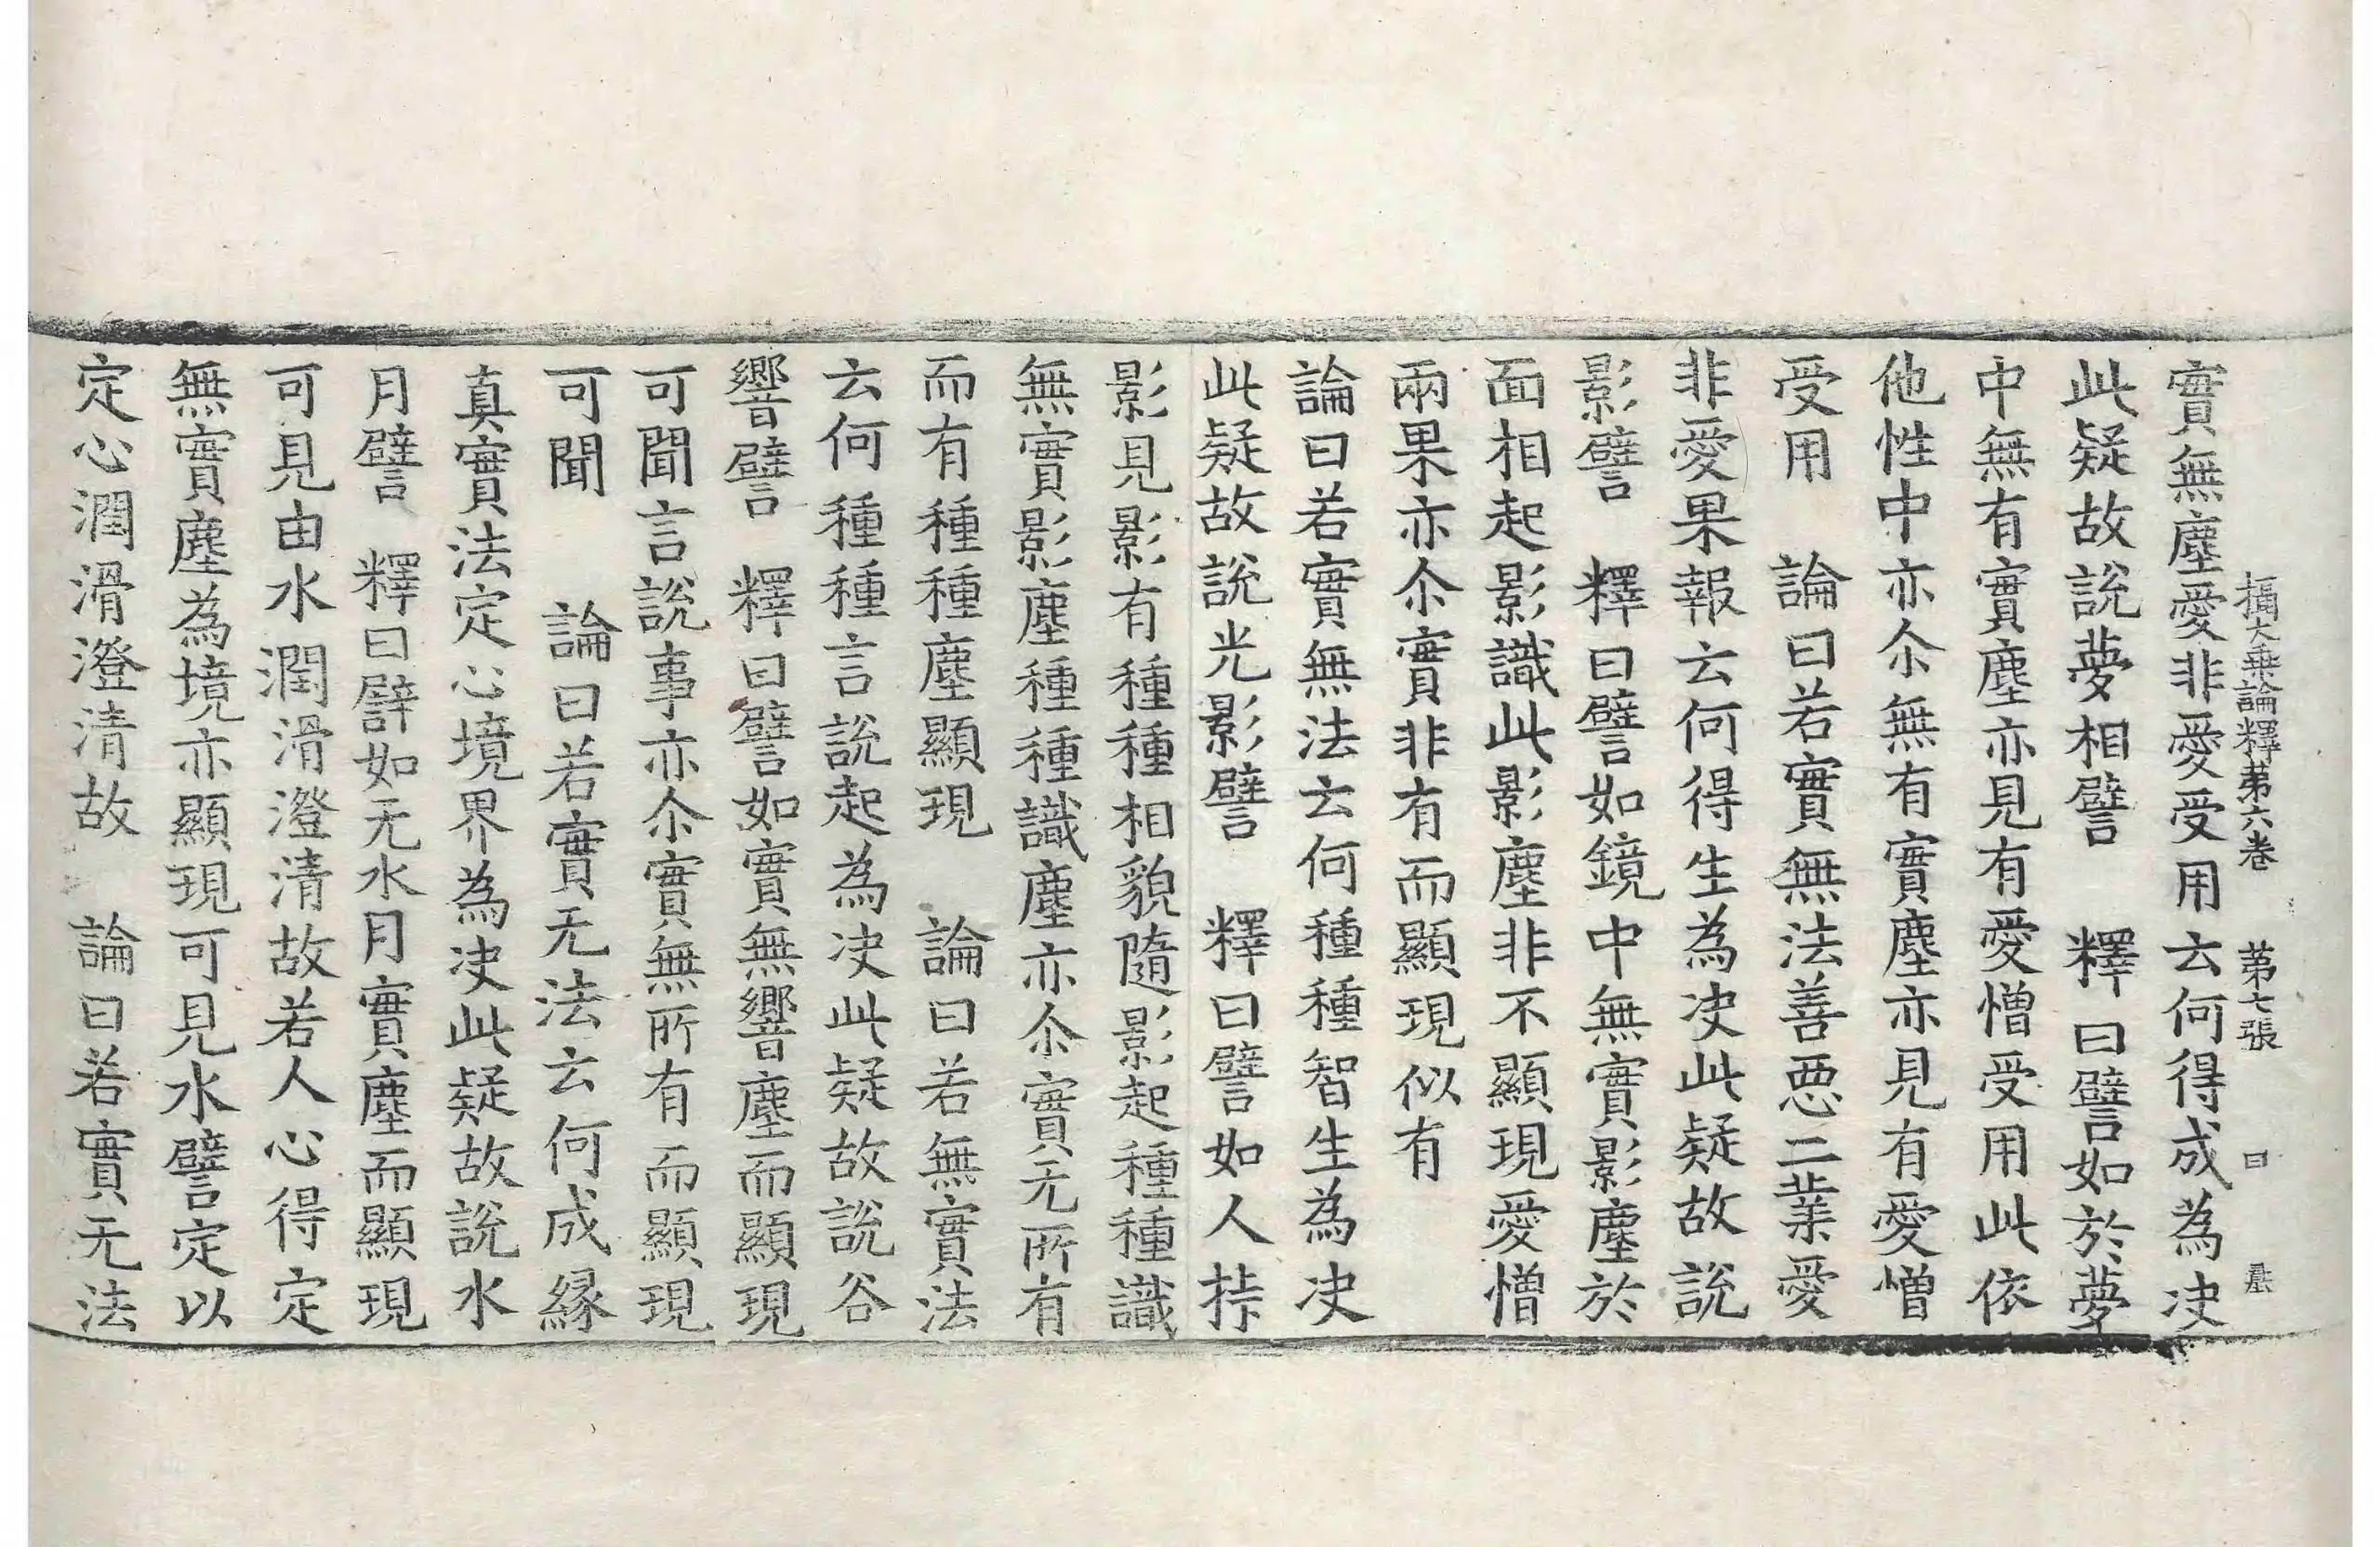 攝大乗論釋苐六卷 苐七張 曰 㫷
實無塵愛非愛受用云何得成為决
此疑故說夢相譬 釋曰譬如於夢
中無有實塵亦見有愛憎受用此依
他性中亦尒無有實塵亦見有愛憎
受用 論曰若實無法善惡二業愛
非愛果報云何得生為决此疑故說
影譬 釋曰譬如鏡中無實影塵於
面相起影識此影塵非不顯現愛憎
兩果亦尒實非有而顯現似有
論曰若實無法云何種種智生為决
此疑故說光影譬 釋曰譬如人挊
影見影有種種相貌隨影起種種識
無實影塵種種識塵亦尒實无所有
而有種種塵顯現 論曰若無實法
云何種種言說起為决此疑故說谷
響譬 釋曰譬如實無響塵而顯現
可聞言說事亦尒實無所有而顯現
可聞 論曰若實无法云何成縁
真實法定心境界為决此疑故說水
月譬 釋曰譬如无水月實塵而顯現
可見由水潤滑澄清故若人心得定
無實塵為境亦顯現可見水譬定以
定心潤滑澄清故 論曰若實无法